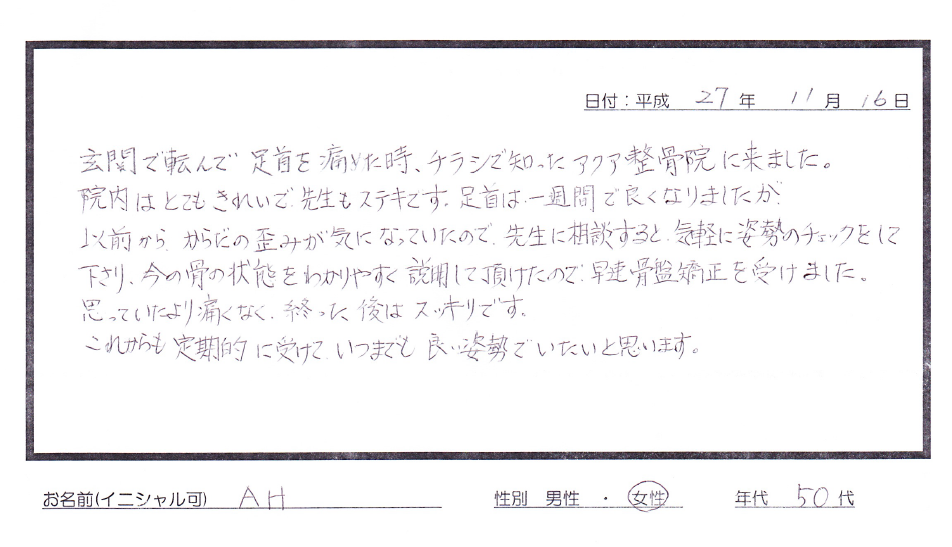 日付：平成 27 年 11 月 16 日
玄関で転んで足首を痛めた時、チラシで知ったアクア整骨院に来ました。
院内はとてもきれいで先生もステキです。足首は一週間で良くなりましたが
以前からからだの歪みが気になっていたので、先生に相談すると、気軽に姿勢のチェックをして
下さり、今の骨の状態をわかりやすく説明して頂けたので、早速骨盤矯正を受けました。
思っていたより痛くなく、終った後はスッキリです。
これからも定期的に受けて、いつまでも良い姿勢でいたいと思います。
お名前(イニシャル可) AH 性別 男性 ・ 女性 年代 50 代